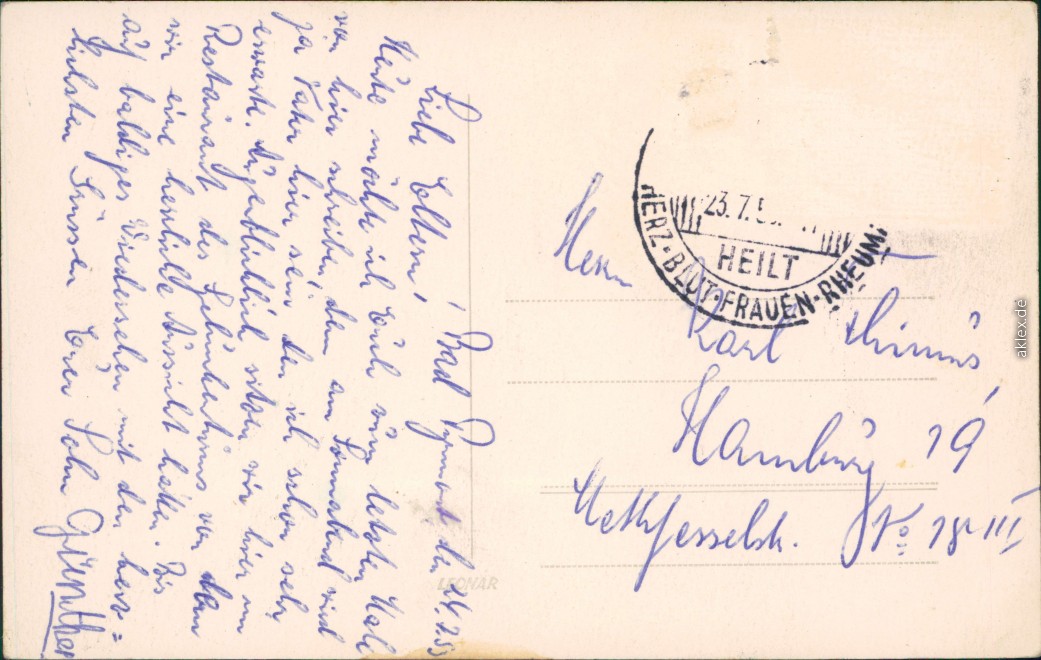 Bad Pyrmont, den 24.7.53
Liebe Eltern!
Heute möchte ich Euch zum letzten Male
von hier schreiben, denn am Sonnabend wird
ja Vater hier sein, den ich schon sehr
erwarte. Augenblicklich sitzen wir hier im
Restaurant des von dem
wir eine herrliche Aussicht haben. Bis
auf baldiges Wiedersehen mit den herz=
lichsten Grüssen Euer Sohn Günther
23.7.5
HEILT
HERZ-BLUT-FRAUEN-RHEUMA
Herrn
Karl
Hamburg 19
Methfesselstr. No 18 III
LEONAR
aklex.de